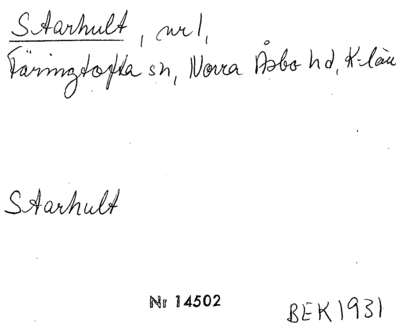 Starhult, nr 1,
Färingtofta sn, Norra Åsbo hd, K-län
Starhult
Nr 14502
BEK 1931